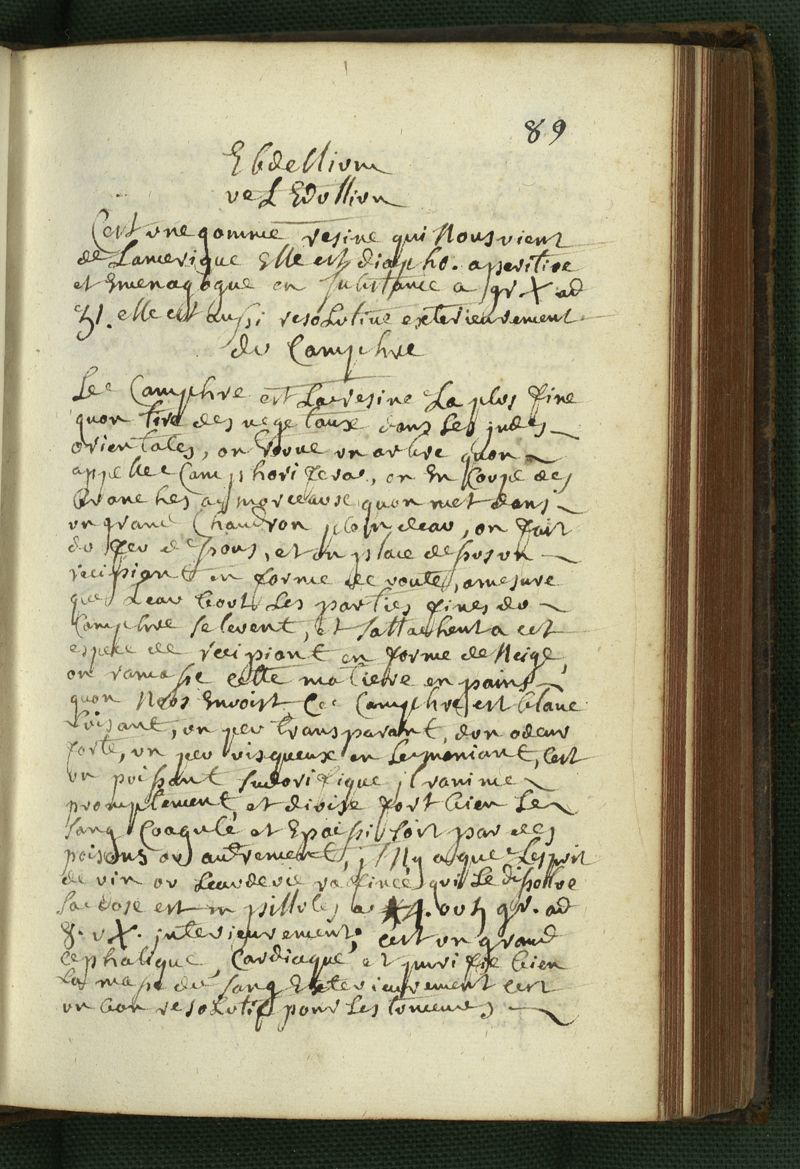 89
Ebdellium
vel Edollion
Cest une gomme resine qui Nous vient
de Lamerique Elle est diapho. aperitive
et Emenagogue en substance a gr. X ad
ʒ1. elle est aussi resolutive exterieurement
du Camphre
Le Camphre est La resine La plus fine
quon tire des vegetaux dans Les jndes
orientales, on trouve un arbre quon
appelle Camphorifera, on En Coupe des
branches a morceause quon met dans
un grand Chaudron plein deau, on fait
du feu desous, et on place desus un
recipiant en forme de voute, amesure
que Leau bout Les parties fines du
Camphre selevent, et sattachent a cet
espece de recipiant en forme de Neige,
on ramasse cette matiere en pains
quon Nous Envoist Ce Camphre est blanc
Luisant, un peu transparant, dun odeur
forte, un peu visqueux en Lemaniant, Cest
un puissant sudorifique jl ranime
promptement et divise fort bien Le
sang Coagulé et Epaissi soit par des
poisons ou autrement, jl Ny a que Lesprit
de vin ou Leaudevie rafinée qui Le dissolve
Sa dose est en pillules a 4. ou 5 gr. ad
8. v X. jnterieurement, cest un grand
cephalique, Cardiaque, et purifie bien
La masse du sang Exterieurement cest
un bon resolutif pour Les tumeurs